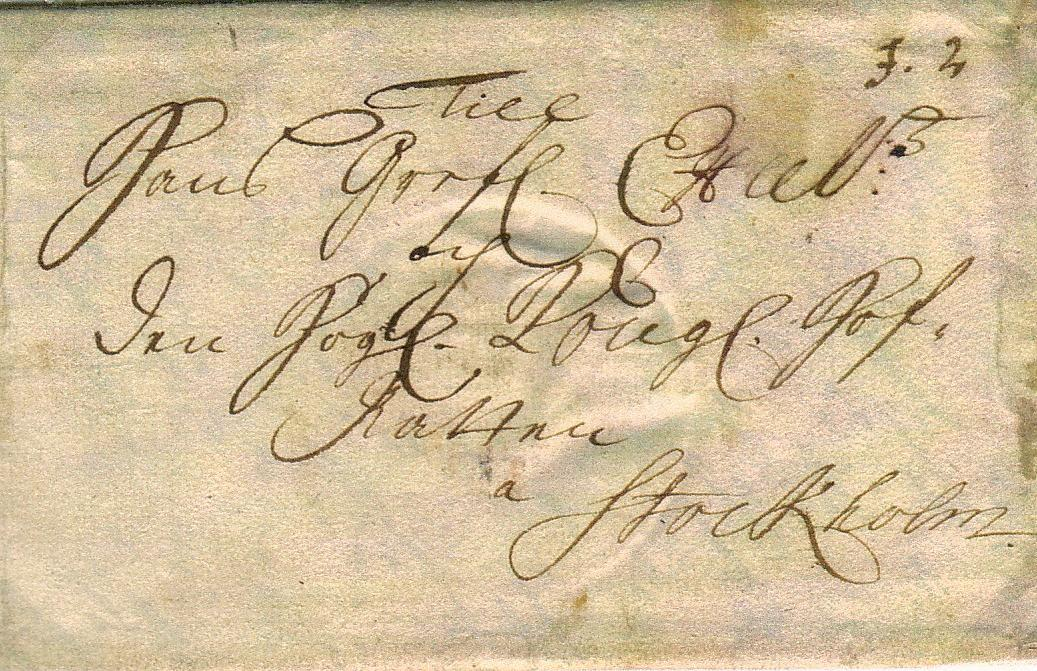 3. 2
Till
Hans Grefl. Excell:s
och
Den Högl. Kongl. Hof-
Rätten
a Stockholm